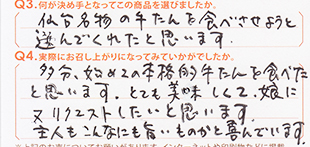 Q3.何が決め手となってこの商品を選びましたか。
仙台名物の牛たんを食べさせようと
選んでくれたと思います.
Q4.実際にお召し上がりになってみていかがでしたか。
多分、始めての本格的牛たんを食べた
と思います。とても美味しくて、娘に
又リクエストしたいと思います.
主人もこんなにも旨いものかと喜んでいます.